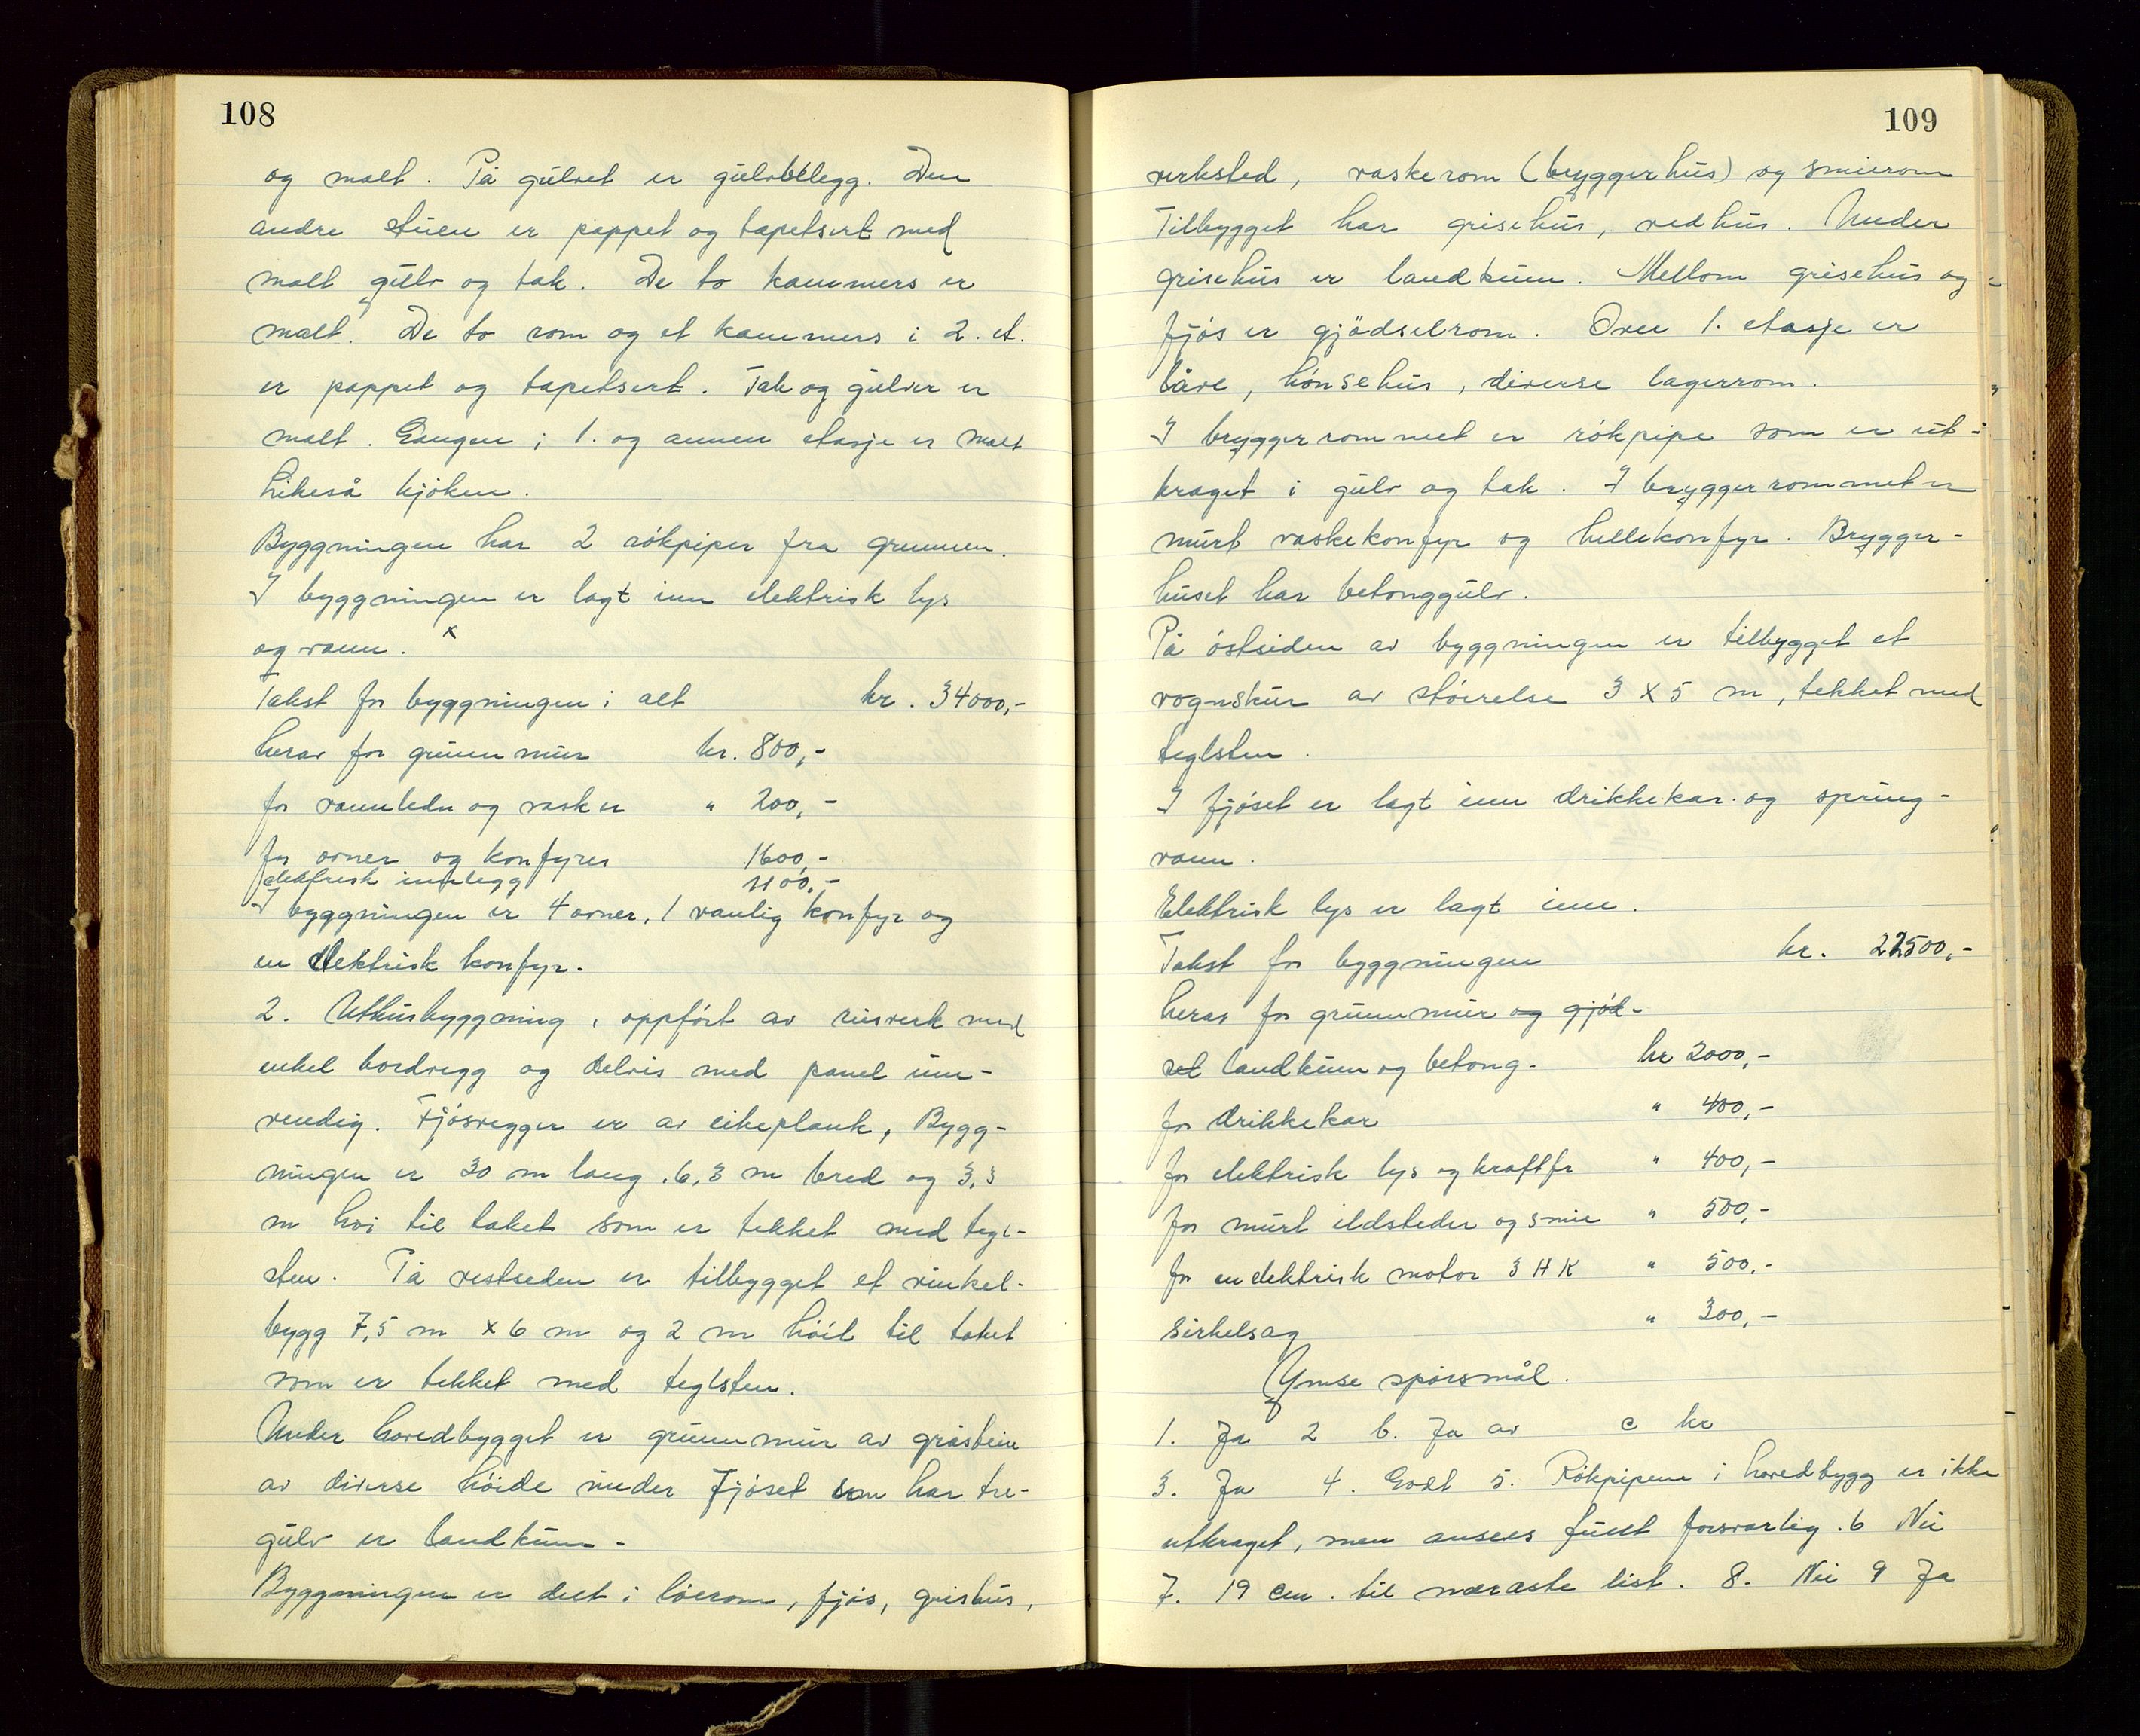 108
og malt. På gulvet er gulvbelegg. Den
andre stuen er pappet og tapetsert med
malt gulv og tak. De to kammers er
malt. De to rom og et kammers i 2. et.
er pappet og tapetsert. Tak og gulver er
malt. Gangen i 1. og annen etasje er malt
Likeså kjöken.
Byggningen har 2 rökpiper fra grunnen.
I byggningen er lagt inn elektrisk lys
og vann. x
Takst for byggningen i alt kr. 34000,-
herav for grunnmur kr. 800,-
for vannledn og vasker " 200,-
for ovner og konfyrer 1600,-
elektrisk innlegg 1100,-
I byggningen er 4 ovner, 1 vanlig konfyr og
en elektrisk konfyr.
2. Uthusbyggning, oppfört av reisverk med
enkel bordvegg og delvis med panel inn-
vendig. Fjösvegger er av eikeplank, Bygg-
ningen er 30 m lang. 6,3 m bred og 3,3
m höi til taket som er tekket med tegl-
sten. På vestseden er tilbygget et vinkel-
bygg 7,5 m x 6 m og 2 m höit til taket
som er tekket med teglsten.
Under hovedbygget er grunnmur av gråstein
av diverse höide under Fjöset som har tre-
gulv er landkum.
Byggningen er delt i löerom, fjös, grishus,
109
verksted, vaskerom (bryggerhus) og smierom
Tilbygget har grisehus, vedhus. Under
grisehus er landkum. Mellom grisehus og
fjös er gjödselrom. Over 1. etasje er
låve, hönsehus, diverse lagerrom.
I bryggerrommet er rökpipe som er ut-
kraget i gulv og tak. I bryggerrommet er
murt vaskekonfyr og hellekonfyr. Brygger-
huset har betonggulv.
På östsiden av byggningen er tilbygget et
vognskur av störrelse 3 x 5 m, tekket med
teglsten.
I fjöset er lagt inn drikkekar og spring-
vann.
Elektrisk lys er lagt inn.
Takst for byggningen kr. 22500,-
herav for grunnmur og gjöd-
sel landkum og betong. kr 2000,-
for drikkekar " 400,-
for elektrisk lys og kraft fr " 400,-
for murt ildsteder og smie " 500,-
for en elektrisk motor 3 HK " 500,-
Sirkelsag " 300,-
Ymse spörsmål.
1. Ja 2 b. Ja av c kr
3. Ja 4. Godt 5. Rökpipene i hovedbygg er ikke
utkraget, men ansees fullt forsvarlig. 6 Nei
7. 19 cm. til næraste list. 8. Nei 9 Ja